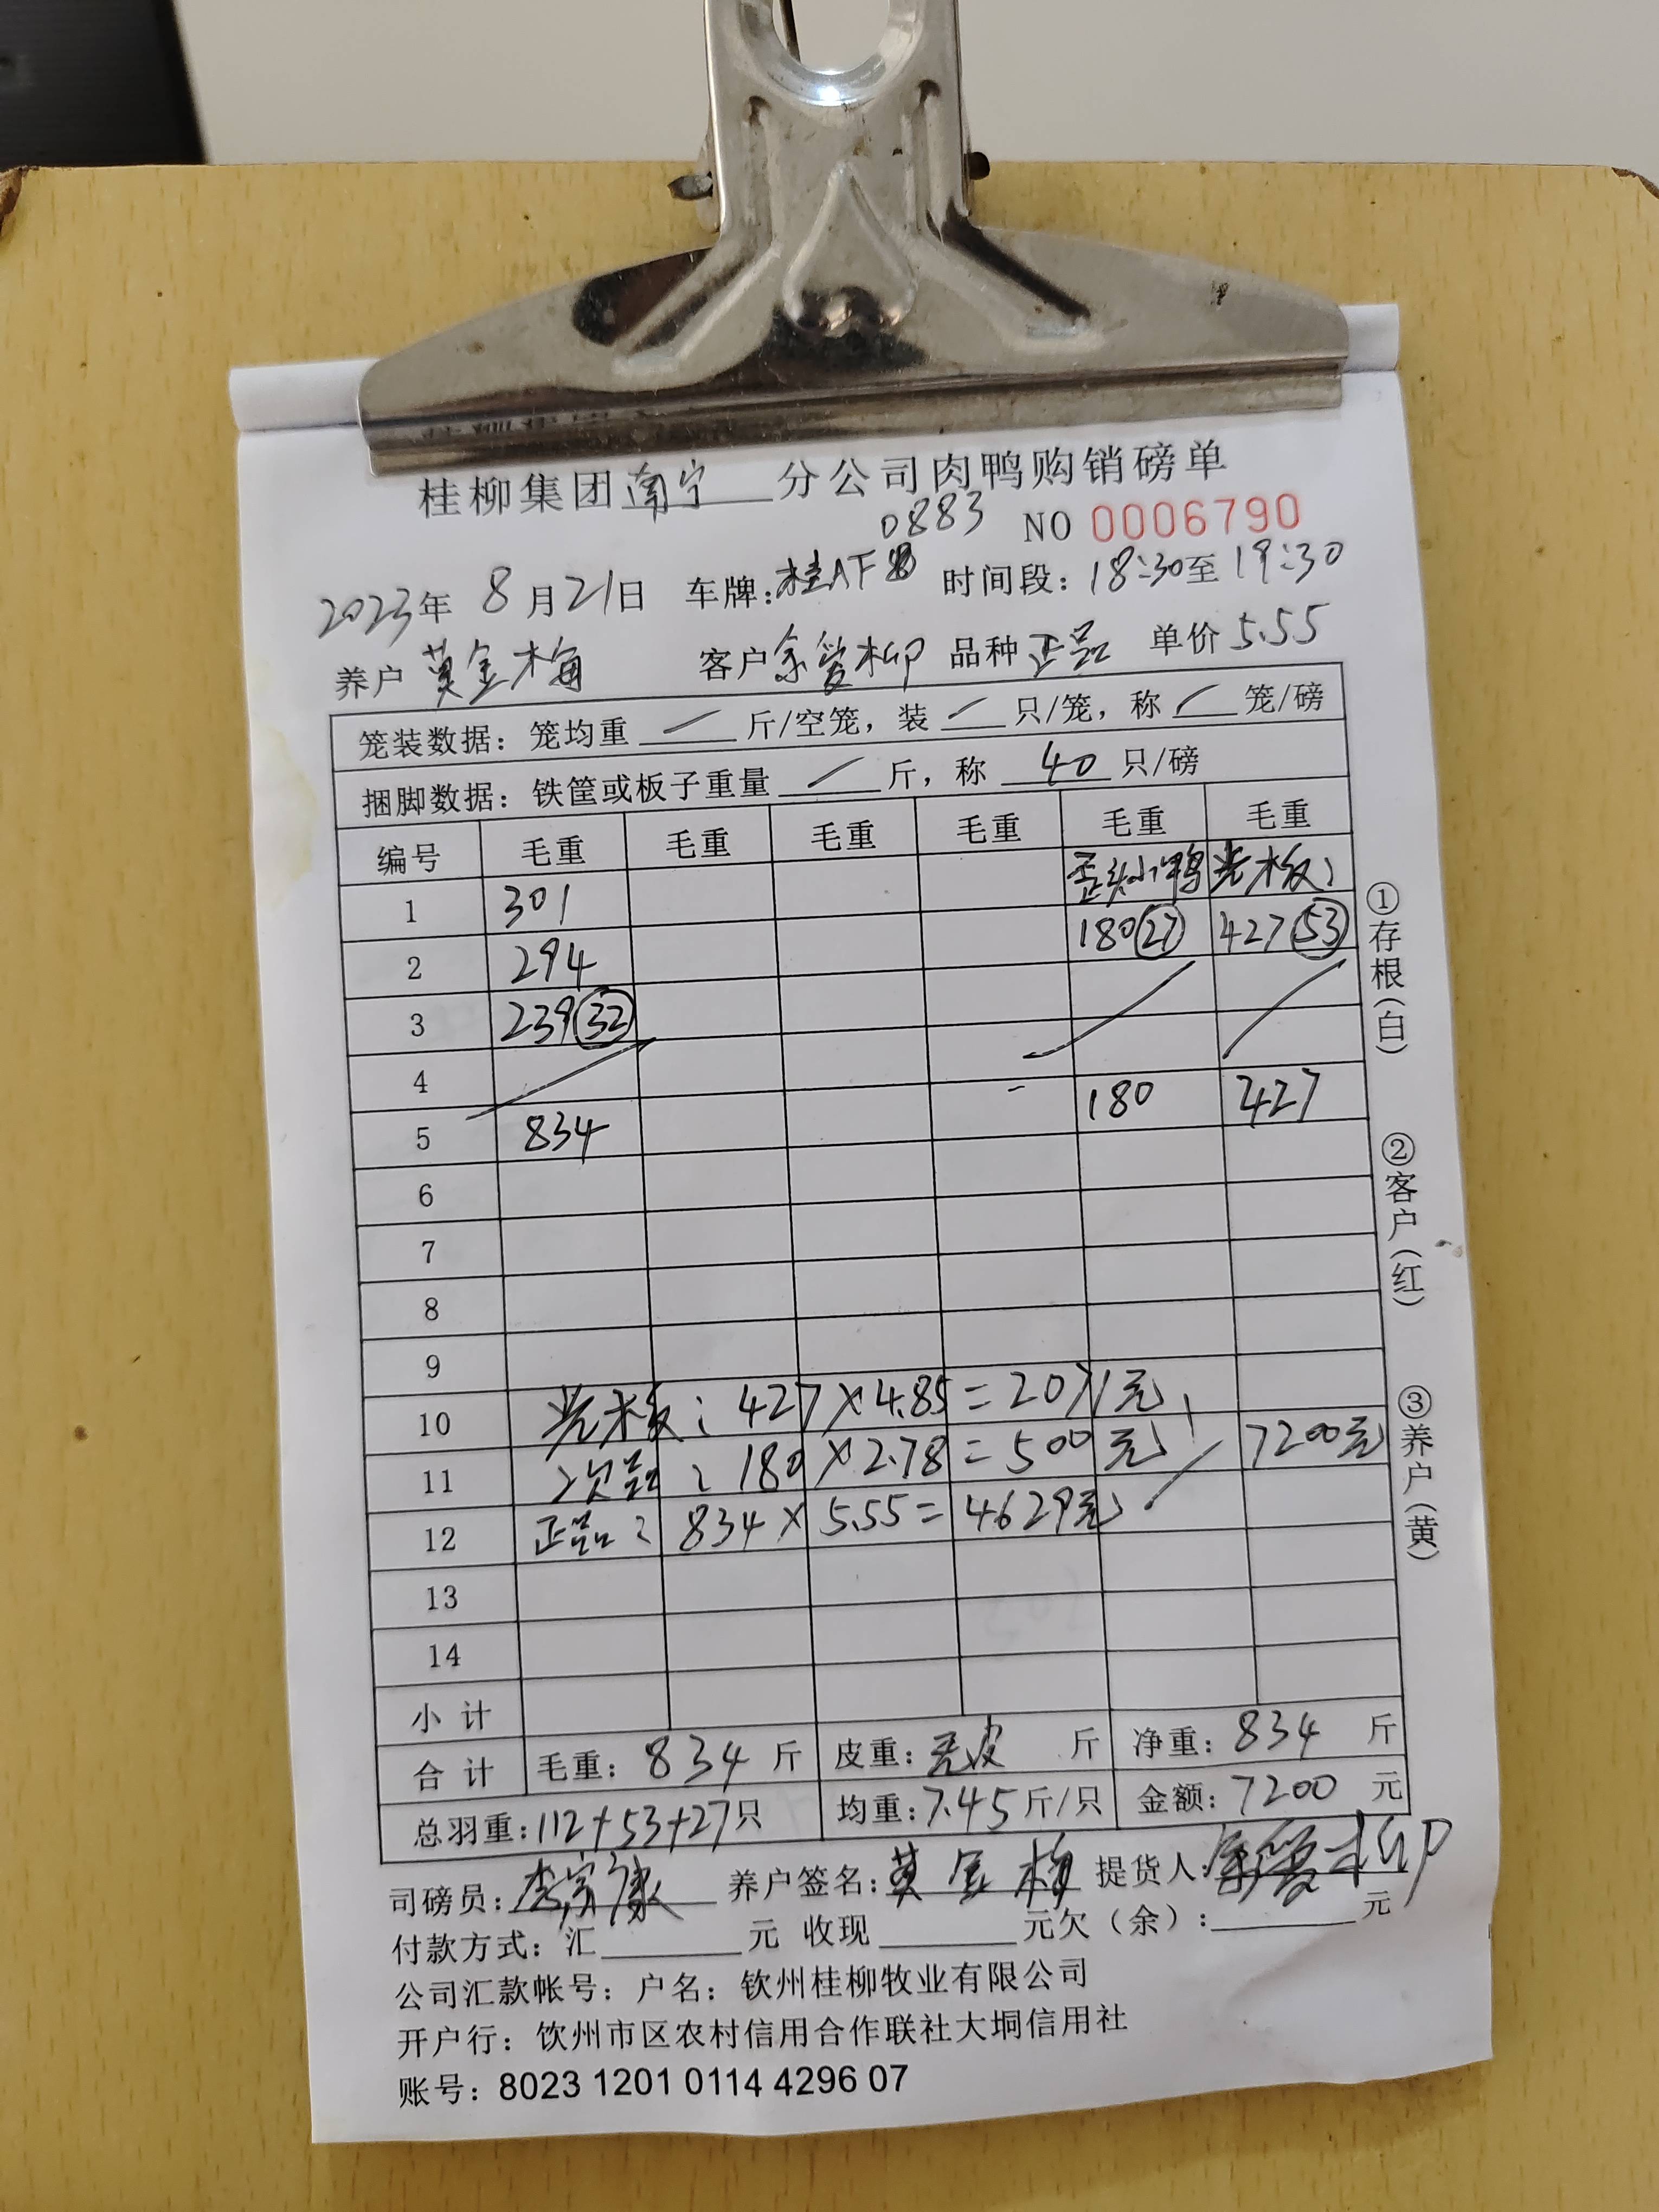 桂柳集团南宁分公司肉鸭购销磅单
0883 NO 0006790
2023年 8月21日 车牌:桂AF 时间段:18:30至19:30
养户 黄金梅 客户 余爱柳 品种 正品 单价 5.55
笼装数据:笼均重 / 斤/空笼,装 / 只/笼,称 / 笼/磅
捆脚数据:铁筐或板子重量 / 斤,称 40 只/磅
编号 毛重 毛重 毛重 毛重 毛重 毛重
1 301 歪头小鸭 光板:
2 294 180(27) 427(53)
3 239(32)
4
5 834 180 427
6
7
8
9
10 光板:427×4.85=2071元
11 次品:180×2.78=500元 7200元
12 正品:834×5.55=4629元
13
14
小计
合计 毛重:834 斤 皮重:毛皮 斤 净重:834 斤
总羽重:112+53+27只 均重:7.45斤/只 金额:7200 元
司磅员: 养户签名:黄金梅 提货人:余爱柳
付款方式:汇 元 收现 元欠(余): 元
公司汇款帐号:户名:钦州桂柳牧业有限公司
开户行:钦州市区农村信用合作联社大垌信用社
账号:8023 1201 0114 4296 07
①存根(白)
②客户(红)
③养户(黄)